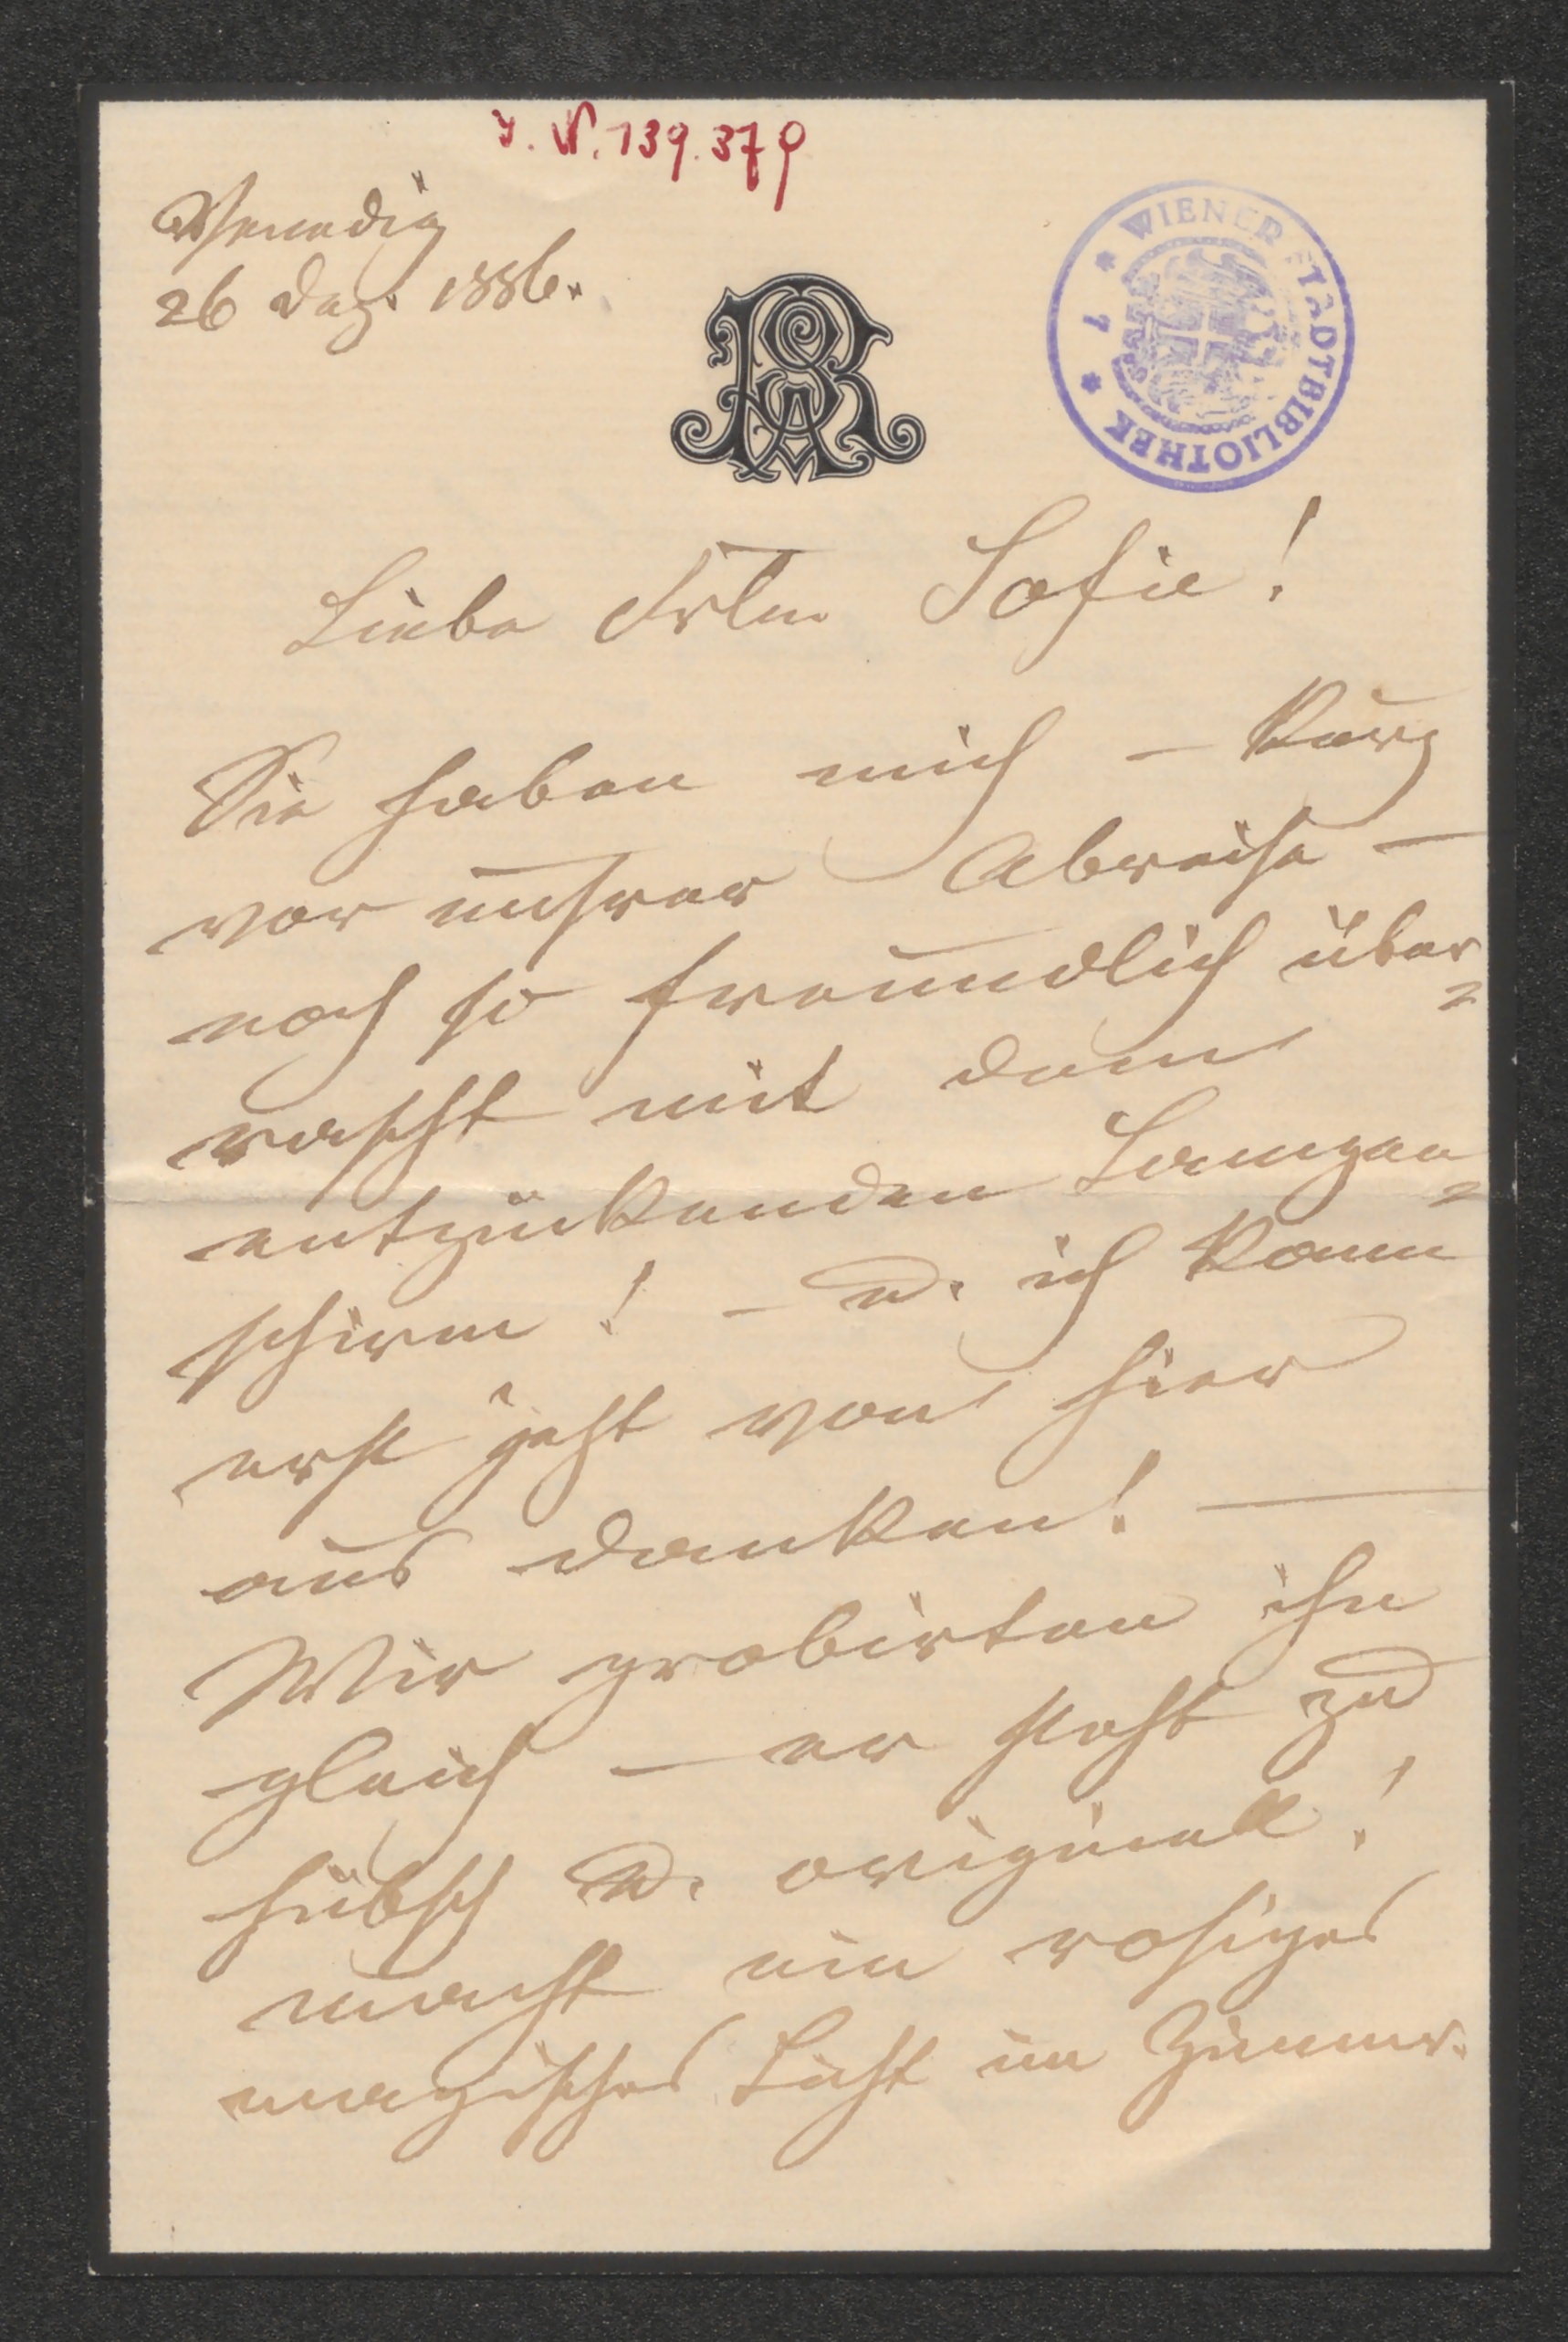 I. N. 139.379
Venedig
26 Dez. 1886.
WIENER STADTBIBLIOTHEK
* 7 *
Liebe Frln Sofie!
Sie haben mich – kurz
vor unsrer Abreise –
noch so freundlich über=
rascht mit dem
entzückenden Lampen=
schirm! – u. ich kann
erst jetzt von hier
aus danken! –
Wir probirten ihn
gleich – er steht zu
hübsch u. originell!
macht ein rosiges
magisches Licht im Zimmer.